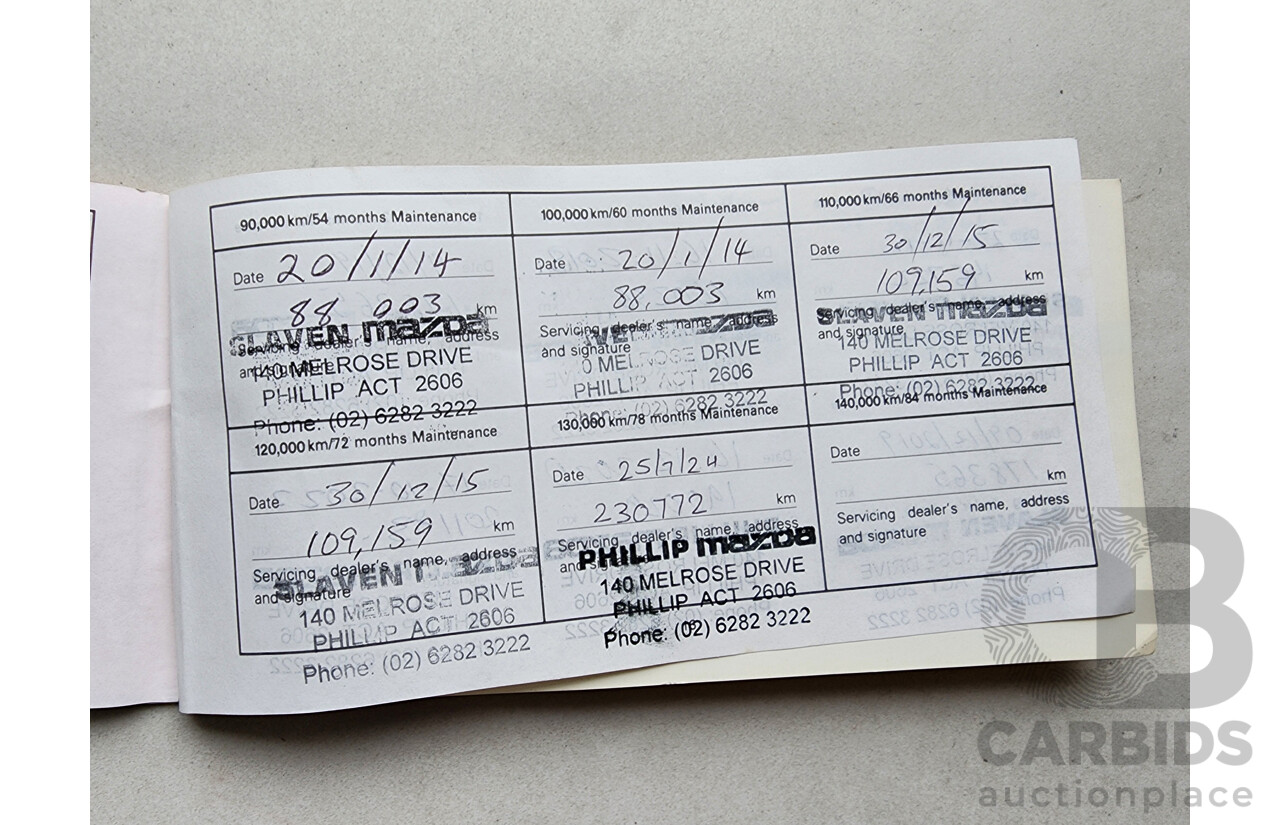 90,000 km/54 months Maintenance
Date 20/1/14
88 003 km
Servicing dealer's name, address
and signature
SLAVEN mazda
140 MELROSE DRIVE
PHILLIP ACT 2606
Phone: (02) 6282 3222
100,000 km/60 months Maintenance
Date 20/1/14
88,003 km
Servicing dealer's name, address
and signature
VEN mazda
0 MELROSE DRIVE
PHILLIP ACT 2606
Phone: (02) 6282 3222
110,000 km/66 months Maintenance
Date 30/12/15
109,159 km
Servicing dealer's name, address
and signature
SLAVEN mazda
140 MELROSE DRIVE
PHILLIP ACT 2606
Phone: (02) 6282 3222
120,000 km/72 months Maintenance
Date 30/12/15
109,159 km
Servicing dealer's name, address
and signature
SLAVEN mazda
140 MELROSE DRIVE
PHILLIP ACT 2606
Phone: (02) 6282 3222
130,000 km/78 months Maintenance
Date 25/7/24
230772 km
Servicing dealer's name, address
and signature
PHILLIP mazda
140 MELROSE DRIVE
PHILLIP ACT 2606
Phone: (02) 6282 3222
140,000 km/84 months Maintenance
Date
km
Servicing dealer's name, address
and signature
B
CARBIDS
auctionplace